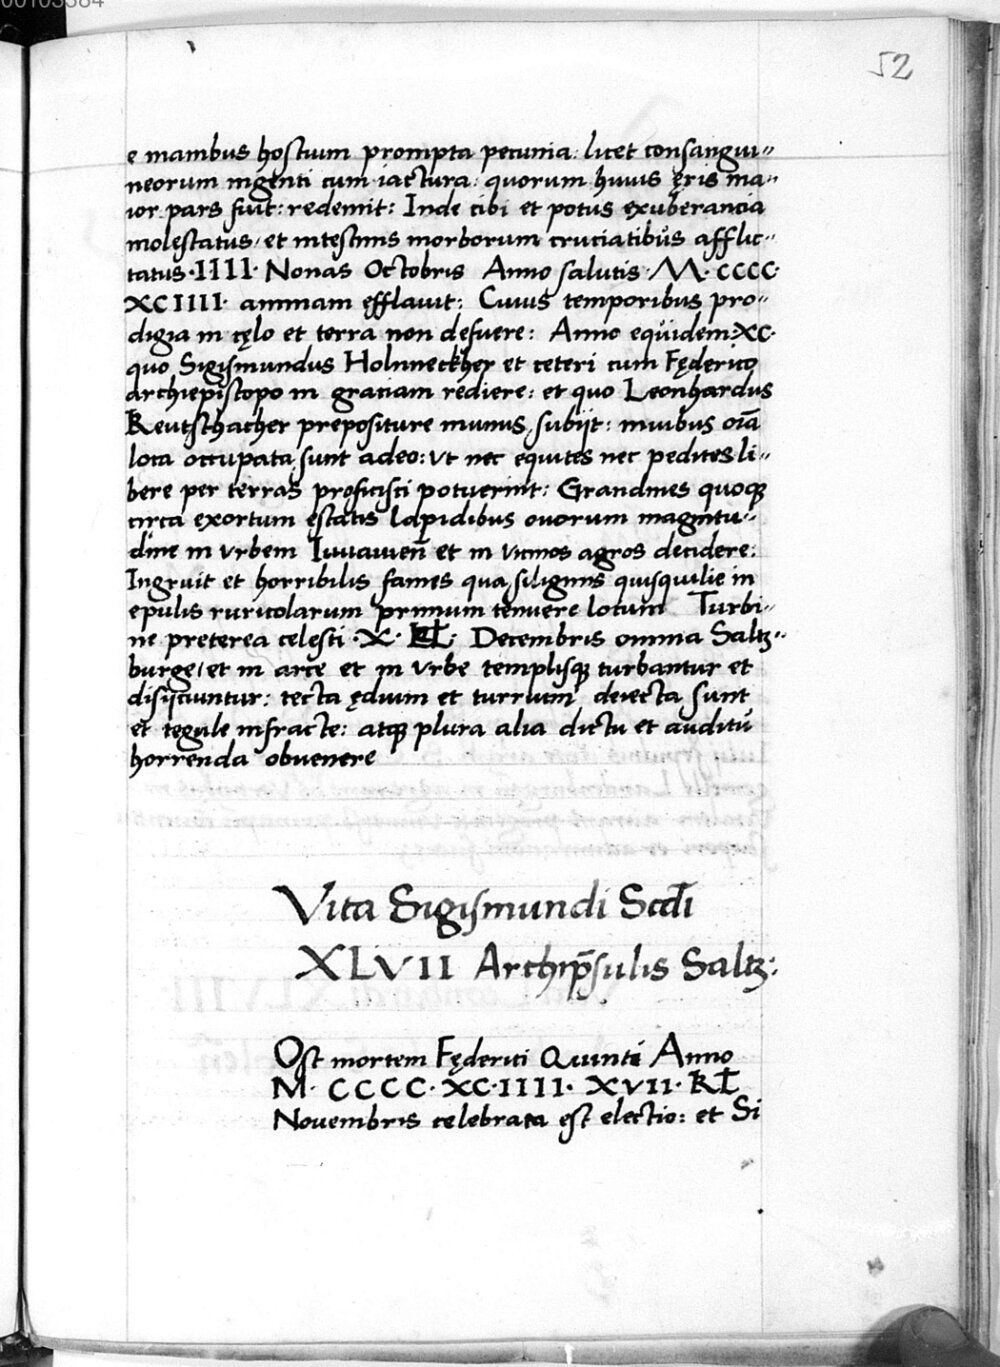 52
e manibus hostium prompta pecunia: licet consangui=
neorum ingenti cum iactura: quorum huius ęris ma=
ior pars fuit: redemit: Inde cibi et potus exuberancia
molestatus, et intestinis morborum cruciatibus afflic=
tatus·IIII· Nonas Octobris Anno salutis·M·CCCC·
XCIIII· animam efflauit: Cuius temporibus pro=
digia in cęlo et terra non defuere: Anno equidem·XC·
quo Sigismundus Holnneckher et ceteri cum Fęderico
archiepiscopo in graciam rediere: et quo Leonhardus
Keutschacher prepositure munus subijt: niuibus oīa
loca occupata sunt adeo: vt nec equites nec pedites li=
bere per terras proficisci potuerint: Grandines quoqꝫ
circa exortum ęstatis lapidibus ouorum magnitu=
dine in vrbem Iuuaueñ et in vicinos agros decidere:
Ingruit et horribilis fames qua siliginis quisquilie in
epulis ruricolarum primum tenuere locum Turbi=
ne preterea celesti·X·KL· Decembris omnia Saltz=
burge, et in arce et in vrbe templisqꝫ turbantur et
disijciuntur: tecta ędium et turrium deiecta sunt
et tegule infracte: atqꝫ plura alia dictu et auditu
horrenda obuenere
Vita Sigismundi Scdī
XLVII Archip̄sulis Saltz:
Ost mortem Fęderici Quinti Anno
M· CCCC·XC·IIII· XVII·KL
Nouembris celebrata est electio: et Si